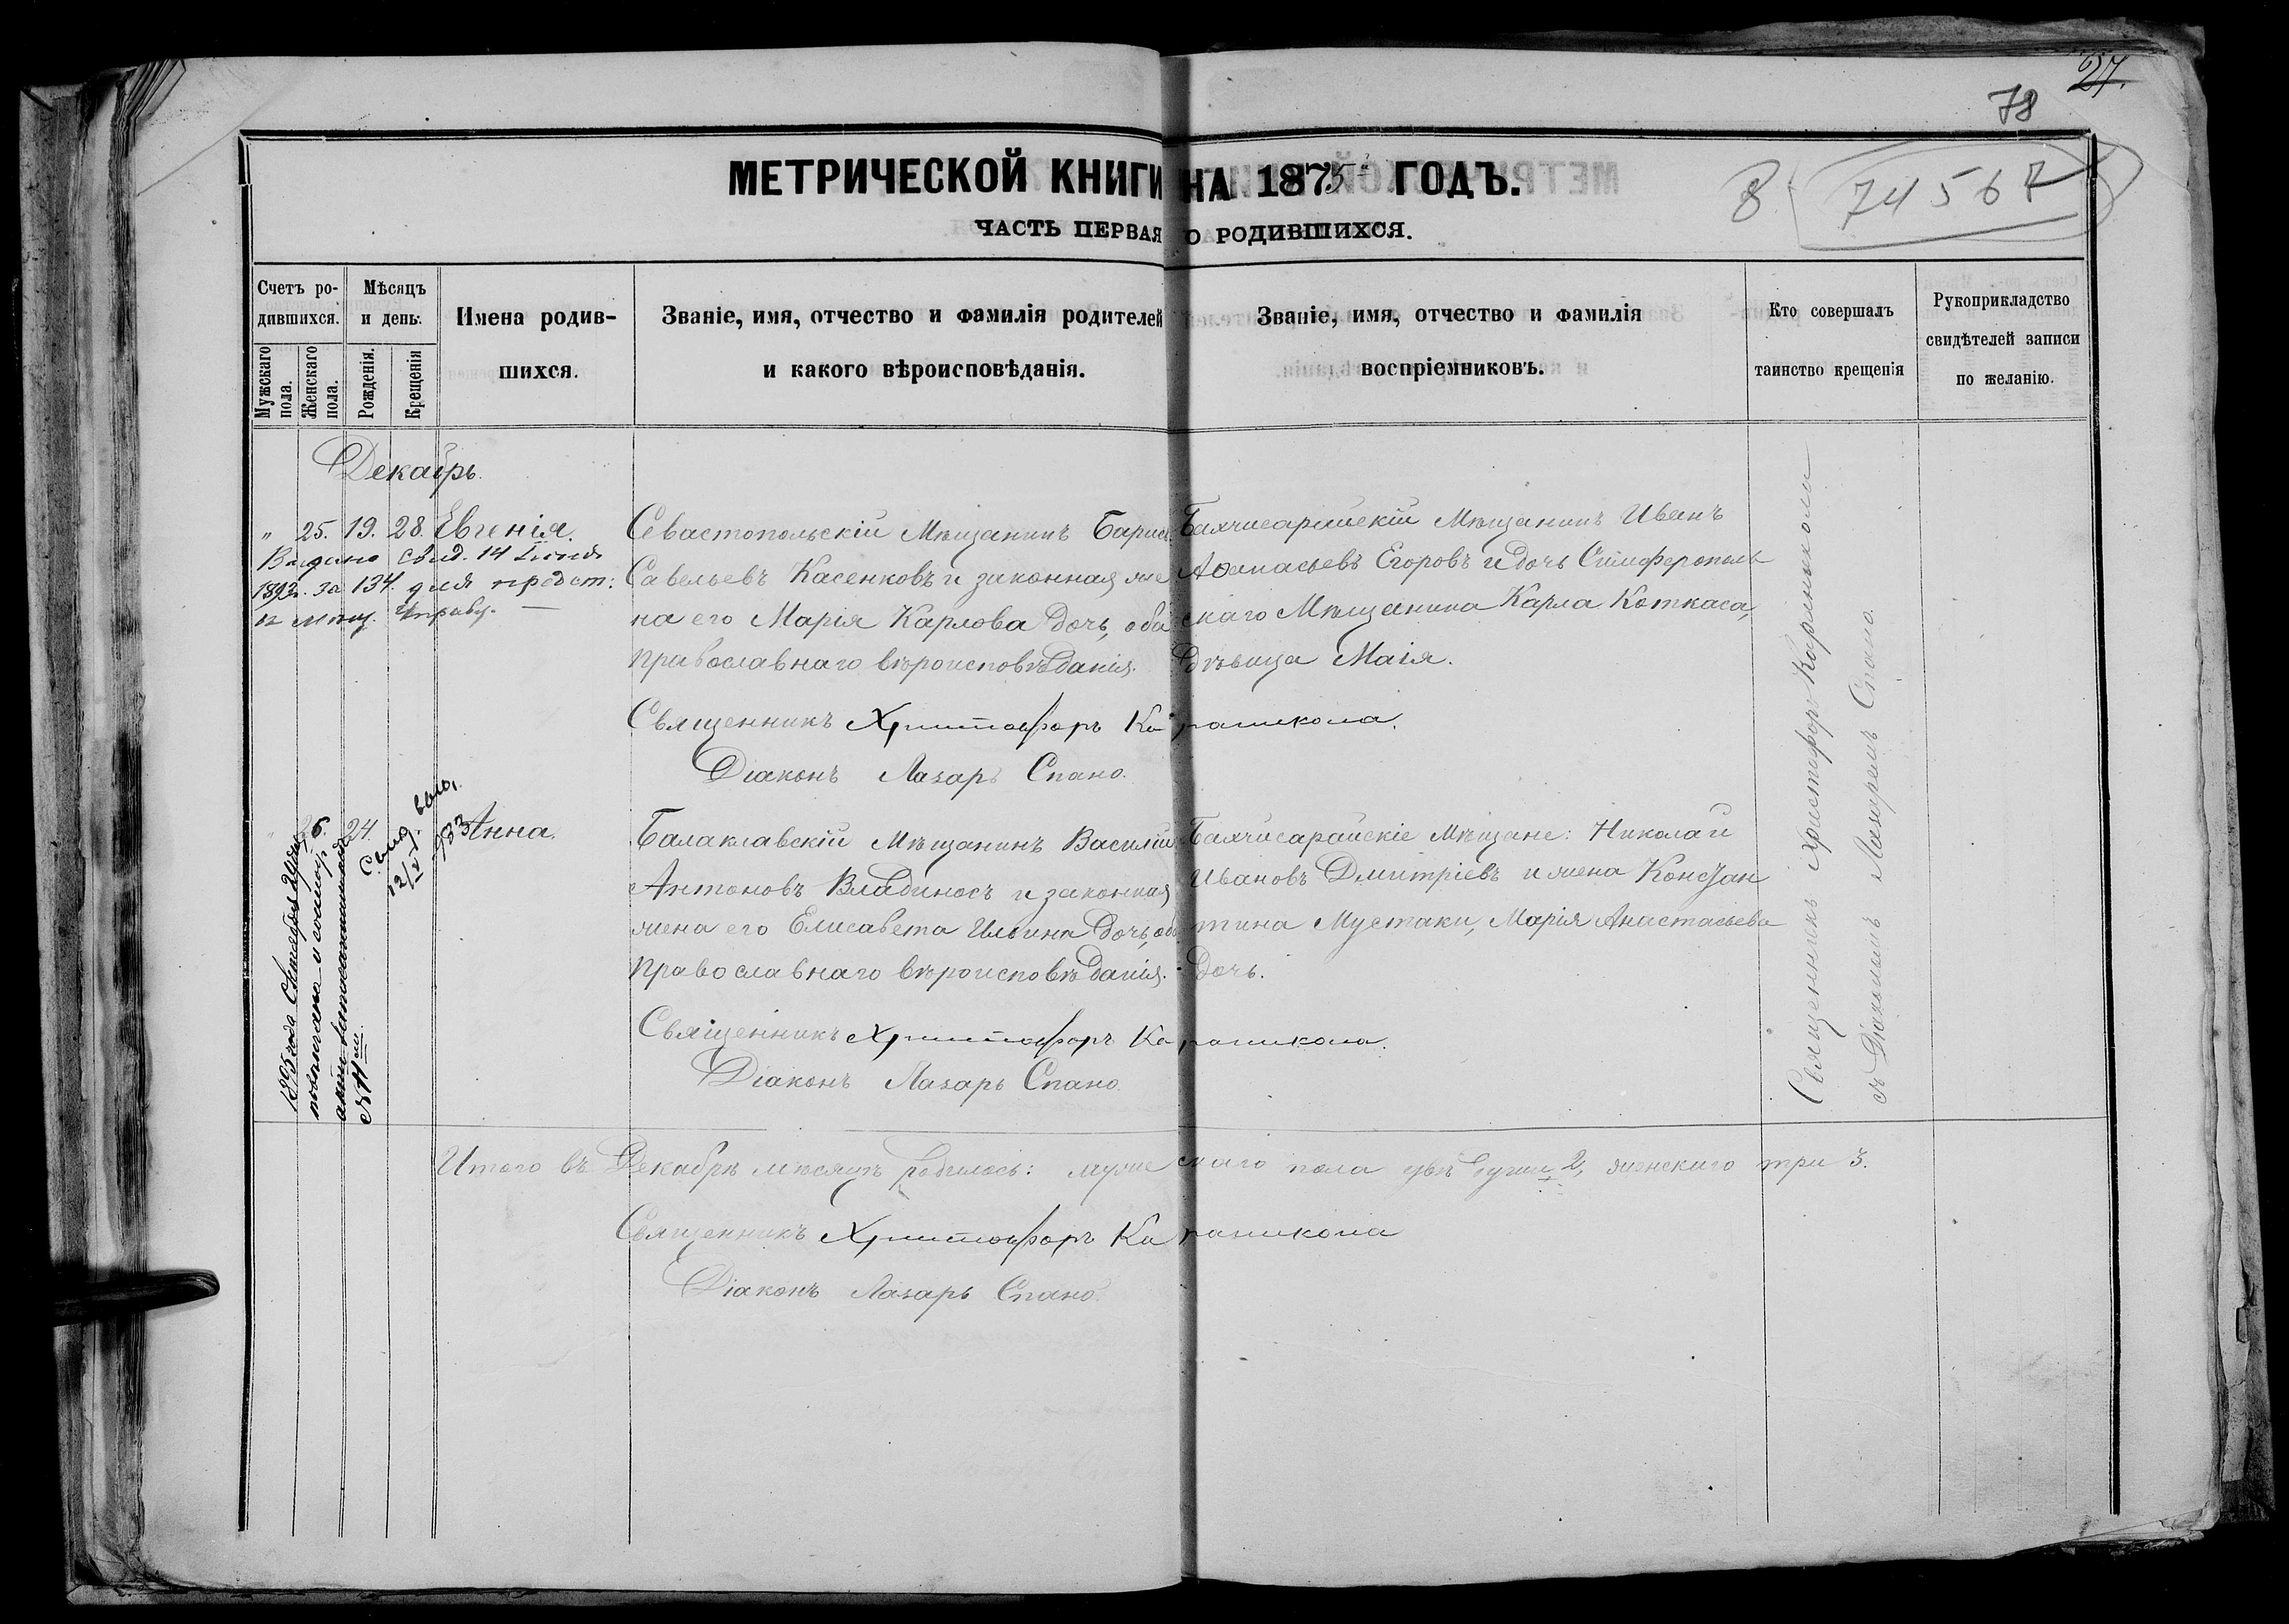 27.
78
8 74567
МЕТРИЧЕСКОЙ КНИГИ НА 1875 ГОДЪ.
ЧАСТЬ ПЕРВАЯ О РОДИВШИХСЯ.
Счетъ родившихся.
Мужскаго пола.
Женскаго пола.
Мѣсяцъ и день.
Рожденія.
Крещенія
Имена родившихся.
Званіе, имя, отчество и фамилія родителей
и какого вѣроисповѣданія.
Званіе, имя, отчество и фамилія
воспріемниковъ.
Кто совершалъ
таинство крещенія
Рукоприкладство
свидѣтелей записи
по желанію.
Декабрь.
" 25. 19. 28. Евгенія.
Выдано свид. 14 Іюня
1892г. за 134. для предст:
въ мѣщ. Управу. —
Севастопольскій Мѣщанинъ Борисъ
Савельевъ Касенковъ и законная же
на его Марія Карлова дочь, оба
православнаго вѣроисповѣданія.
Бахчисарайскій Мѣщанинъ Иванъ
Аѳанасьевъ Егоровъ и дочь Симферополь
скаго Мѣщанина Карла Коткаса,
дѣвица Маія.
Священникъ Христофоръ Караникола.
Діаконъ Лазарь Спано.
" 26. 24. Анна.
Свид. выд.
Балаклавскій Мѣщанинъ Василій
Антоновъ Владиносъ и законная
жена его Елисавета Ильина дочь, оба
православнаго вѣроисповѣданія.
Бахчисарайскіе Мѣщане: Николай
Ивановъ Дмитріевъ и жена Констан
тина Мустаки, Марія Анастасьева
дочь.
Священникъ Христофоръ Караникола.
Діаконъ Лазарь Спано
Священникъ Христофоръ Караникола
съ Діакономъ Лазаремъ Спано.
Итого въ Декабрѣ мѣсяцѣ родилось: мужескаго пола двѣ души 2, женскаго три 3.
Священникъ Христофоръ Караникола
Діаконъ Лазарь Спано.